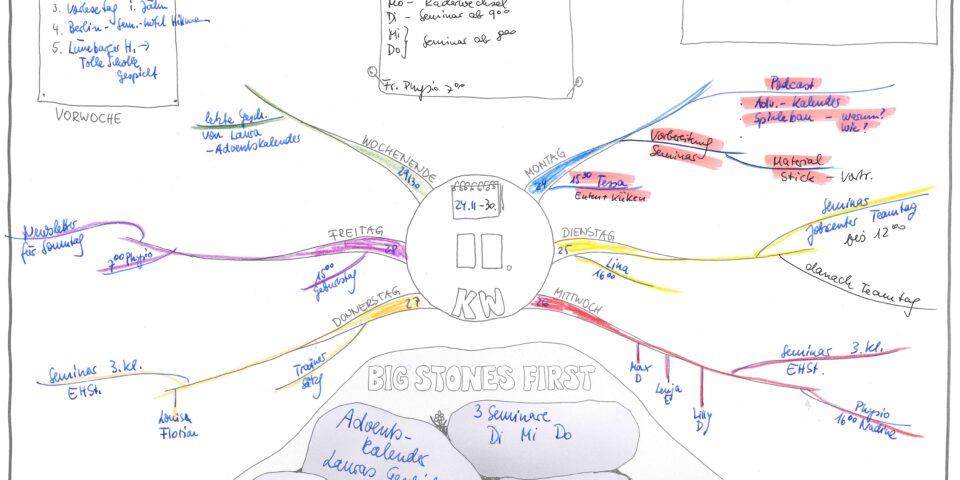 3. Vorlesetag i. Jahn
4. Berlin - Sem.-hotel
5. Lüneburger H. →
Tolle Scholle
gespielt
VORWOCHE
Mo - Räderwechsel
Di - Seminar ab 9 00
Mi
Do } Seminar ab 8 00
Fr. Physio 7 00
letzte Gesch.
von Laura
- Adventskalender
WOCHENENDE
29/30
MONTAG
24
Podcast
Adv.- Kalender
Spieleban - warum?
wie?
Vorbereitung
Seminar
Material
Stick - Vortr.
15 30 Tessa
Enten + Küken
24.11 - 30.
KW
FREITAG
28
Newsletter
für Sonntag
7 00 Physio
15 00
Geburtstag
DIENSTAG
25
Seminar
Jobcenter Teamtag
bis 12 00
danach Teamtag
Lina
16 00
DONNERSTAG
27
Seminar 3. Kl.
EHSt.
Louisa
Florian
Trainer
MITTWOCH
26
Max
D
Lenja
E
Lilly
D
Seminar 3. Kl.
EHSt.
Physio
16 00 Nadine
BIG STONES FIRST
Advents-
kalender
Lauras
3 Seminare
Di Mi Do